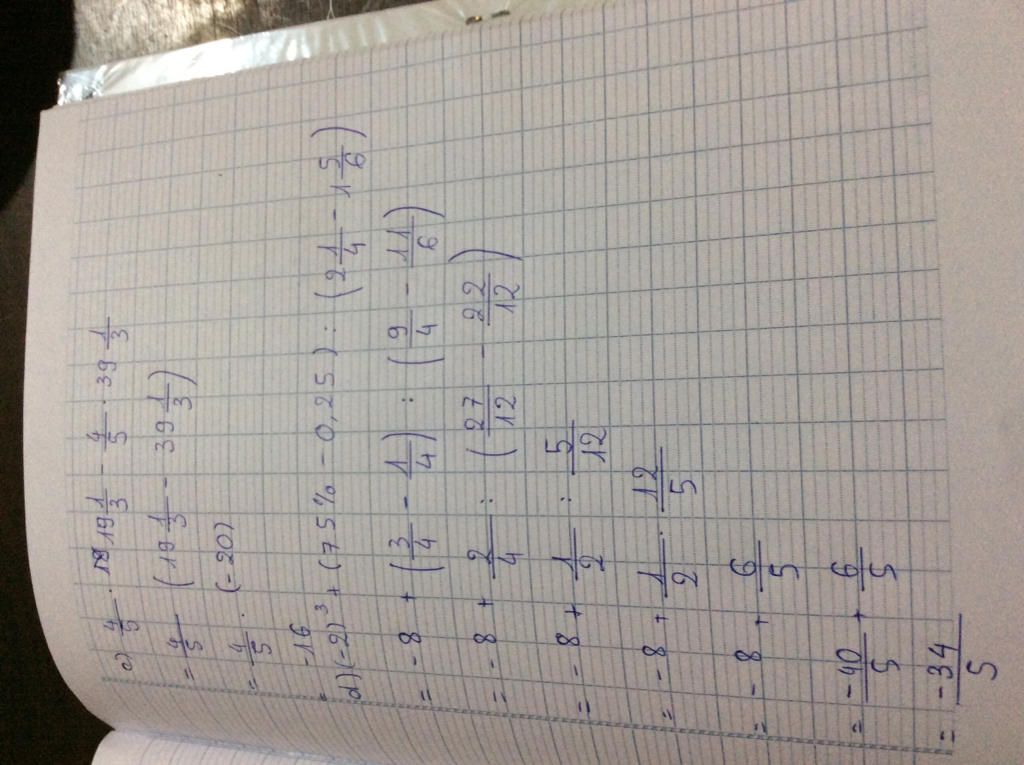 c) 4/5 · 19 1/3 - 4/5 · 39 1/3
= 4/5 (19 1/3 - 39 1/3)
= 4/5 · (-20)
= -16
d) (-2)³ + (75% - 0,25) : (2 1/4 - 1 5/6)
= -8 + (3/4 - 1/4) : (9/4 - 11/6)
= -8 + 2/4 : (27/12 - 22/12)
= -8 + 1/2 : 5/12
= -8 + 1/2 · 12/5
= -8 + 6/5
= -40/5 + 6/5
= -34/5